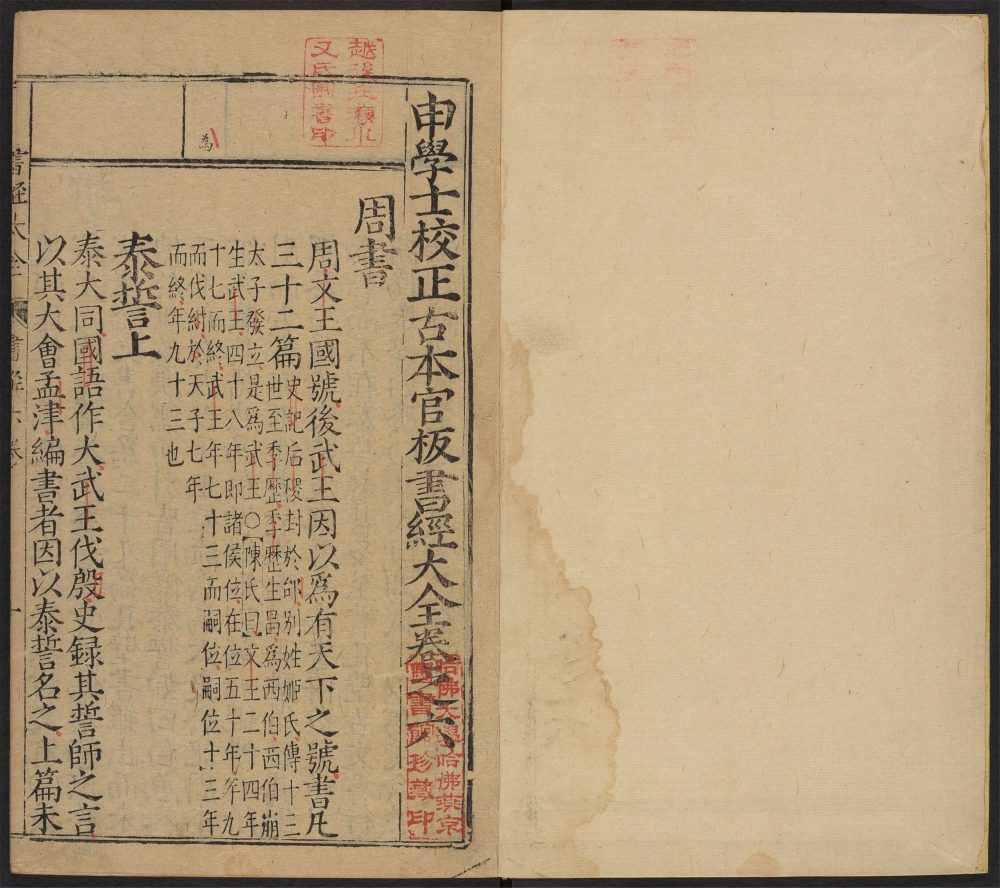 申學士校正古本官板書經大全卷之六
周書
周文王國號後武王因以爲有天下之號書凡
三十二篇
史記后稷封於邰別姓姬氏傳十三
世至季歷季歷生昌爲西伯西伯崩
太子發立是爲武王○陳氏曰文王二十四年
生武王四十八年即諸侯位在位五十年年九
十七而終武王年七十三而嗣位嗣位十三年
而伐紂於天子七年
而終年九十三也
泰誓上
泰大同國語作大武王伐殷史録其誓師之言
以其大會孟津編書者因以泰誓名之上篇未
書經大全
書經六卷
一
為
哈佛大學哈佛燕京
圖書館珍藏印